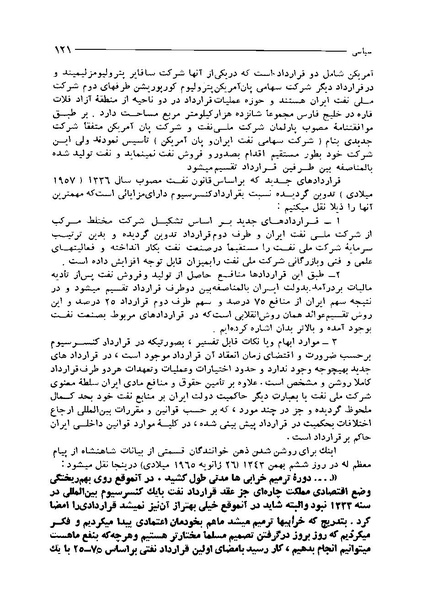 سیاسی ۱۲۱
آمریکن شامل دو قرارداد است که دریکی از آنها شرکت سافایر پترولیومز لیمیتد و
در قرارداد دیگر شرکت سهامی پان آمریکن پترولیوم کورپوریشن طرفهای دوم شرکت
ملی نفت ایران هستند و حوزه عملیات قرارداد در دو ناحیه از منطقه آزاد فلات
قاره در خلیج فارس مجموعاً شانزده هزار کیلومتر مربع مساحت دارد . بر طبق
موافقتنامهٔ مصوب پارلمان شرکت ملی نفت و شرکت پان آمریکن متفقاً شرکت
جدیدی بنام ( شرکت سهامی نفت ایران و پان آمریکن ) تأسیس نمودند ولی این
شرکت خود بطور مستقیم اقدام بصدور و فروش نفت نمینماید و نفت تولید شده
بالمناصفه بین طرفین قرارداد تقسیم میشود
قراردادهای جدید که براساس قانون نفت مصوب سال ۱۳۳۶ ( ۱۹۵۷
میلادی ) تدوین گردیده نسبت بقرارداد کنسرسیوم دارای مزایائی است که مهمترین
آنها را ذیلا نقل میکنیم :
۱ – قراردادهای جدید بر اساس تشکیل شرکت مختلط مرکب
از شرکت ملی نفت ایران و طرف دوم قرارداد تدوین گردیده و بدین ترتیب
سرمایهٔ شرکت ملی نفت را مستقیماً در صنعت نفت بکار انداخته و فعالیتهای
علمی و فنی و بازرگانی شرکت ملی نفت را بمیزان قابل توجه افزایش داده است .
۲– طبق این قراردادها منافع حاصل از تولید و فروش نفت پس از تأدیه
مالیات بر درآمد بدولت ایران بالمناصفه بین دو طرف قرارداد تقسیم میشود و در
نتیجه سهم ایران از منافع ۷۵ درصد و سهم طرف دوم قرارداد ۲۵ درصد و این
روش تقسیم عوائد همان روش انقلابی است که در قراردادهای مربوط بصنعت نفت
بوجود آمده و بالاتر بدان اشاره کرده‌ایم .
۳ – موارد ابهام و یا نکات قابل تفسیر ، بصورتیکه در قرارداد کنسرسیوم
برحسب ضرورت و اقتضای زمان انعقاد آن قرارداد موجود است ، در قراردادهای
جدید بهیچوجه وجود ندارد و حدود اختیارات و عملیات و تعهدات هر دو طرف قرارداد
کاملا روشن و مشخص است . علاوه بر تأمین حقوق و منافع مادی ایران سلطهٔ معنوی
شرکت ملی نفت یا بعبارت دیگر حاکمیت دولت ایران بر منابع نفت خود بحد کمال
ملحوظ گردیده و جز در چند مورد ، که بر حسب قوانین و مقررات بین‌المللی ارجاع
اختلافات بحکمیت در قرارداد پیش بینی شده ، در کلیهٔ موارد قوانین داخلی ایران
حاکم بر قرارداد است .
اینک برای روشن شدن ذهن خوانندگان قسمتی از بیانات شاهنشاه از پیام
معظم له در روز ششم بهمن ۱۳۴۳ (۲۶ ژانویه ۱۹۶۵ میلادی) دراینجا نقل میشود :
«.... دورهٔ ترمیم خرابی ها مدتی طول کشید . در آنموقع روی بهم‌ریختگی
وضع اقتصادی مملکت چاره‌ای جز عقد قرارداد نفت با یک کنسرسیوم بین‌المللی در
سنه ۱۳۳۳ نبود و البته شاید در آنموقع خیلی بهتر از آن نیز نمیشد قراردادی را امضا
کرد . بتدریج که خرابیها ترمیم میشد ماهم بخودمان اعتمادی پیدا میکردیم و فکر
میکردیم که روز بروز درگرفتن تصمیم مسلماً مختارتر هستیم و هرچه که بنفع ماهست
میتوانیم انجام بدهیم ، کار رسید بامضای اولین قرارداد نفتی براساس ۷۵–۲۵ با یک